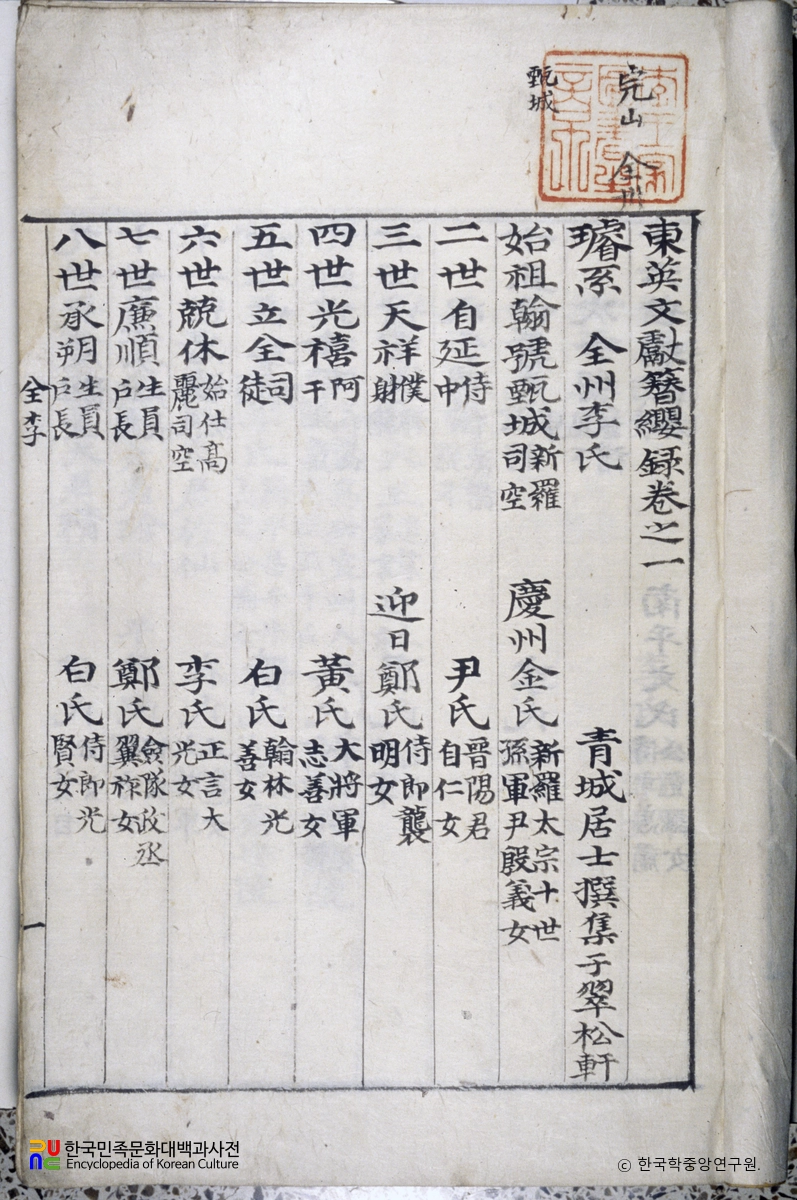 完山 全州
甄城
東英文獻簪纓録卷之一
璿系 全州李氏 青城居士撰集于翠松軒
始祖翰號甄城新羅司空 慶州金氏新羅太宗十世孫軍尹殷義女
二世自延侍中 尹氏晉陽君自仁女
三世天祥僕射 迎日鄭氏侍郎襲明女
四世光禧阿干 黃氏大將軍志善女
五世立全司徒 白氏翰林光善女
六世兢休始仕高麗司空 李氏正言大光女
七世廉順生員戶長 鄭氏僉隊政丞翼祚女
八世承朔生員戶長 白氏侍郎光賢女
全李
一
한국민족문화대백과사전
Encyclopedia of Korean Culture
© 한국학중앙연구원.